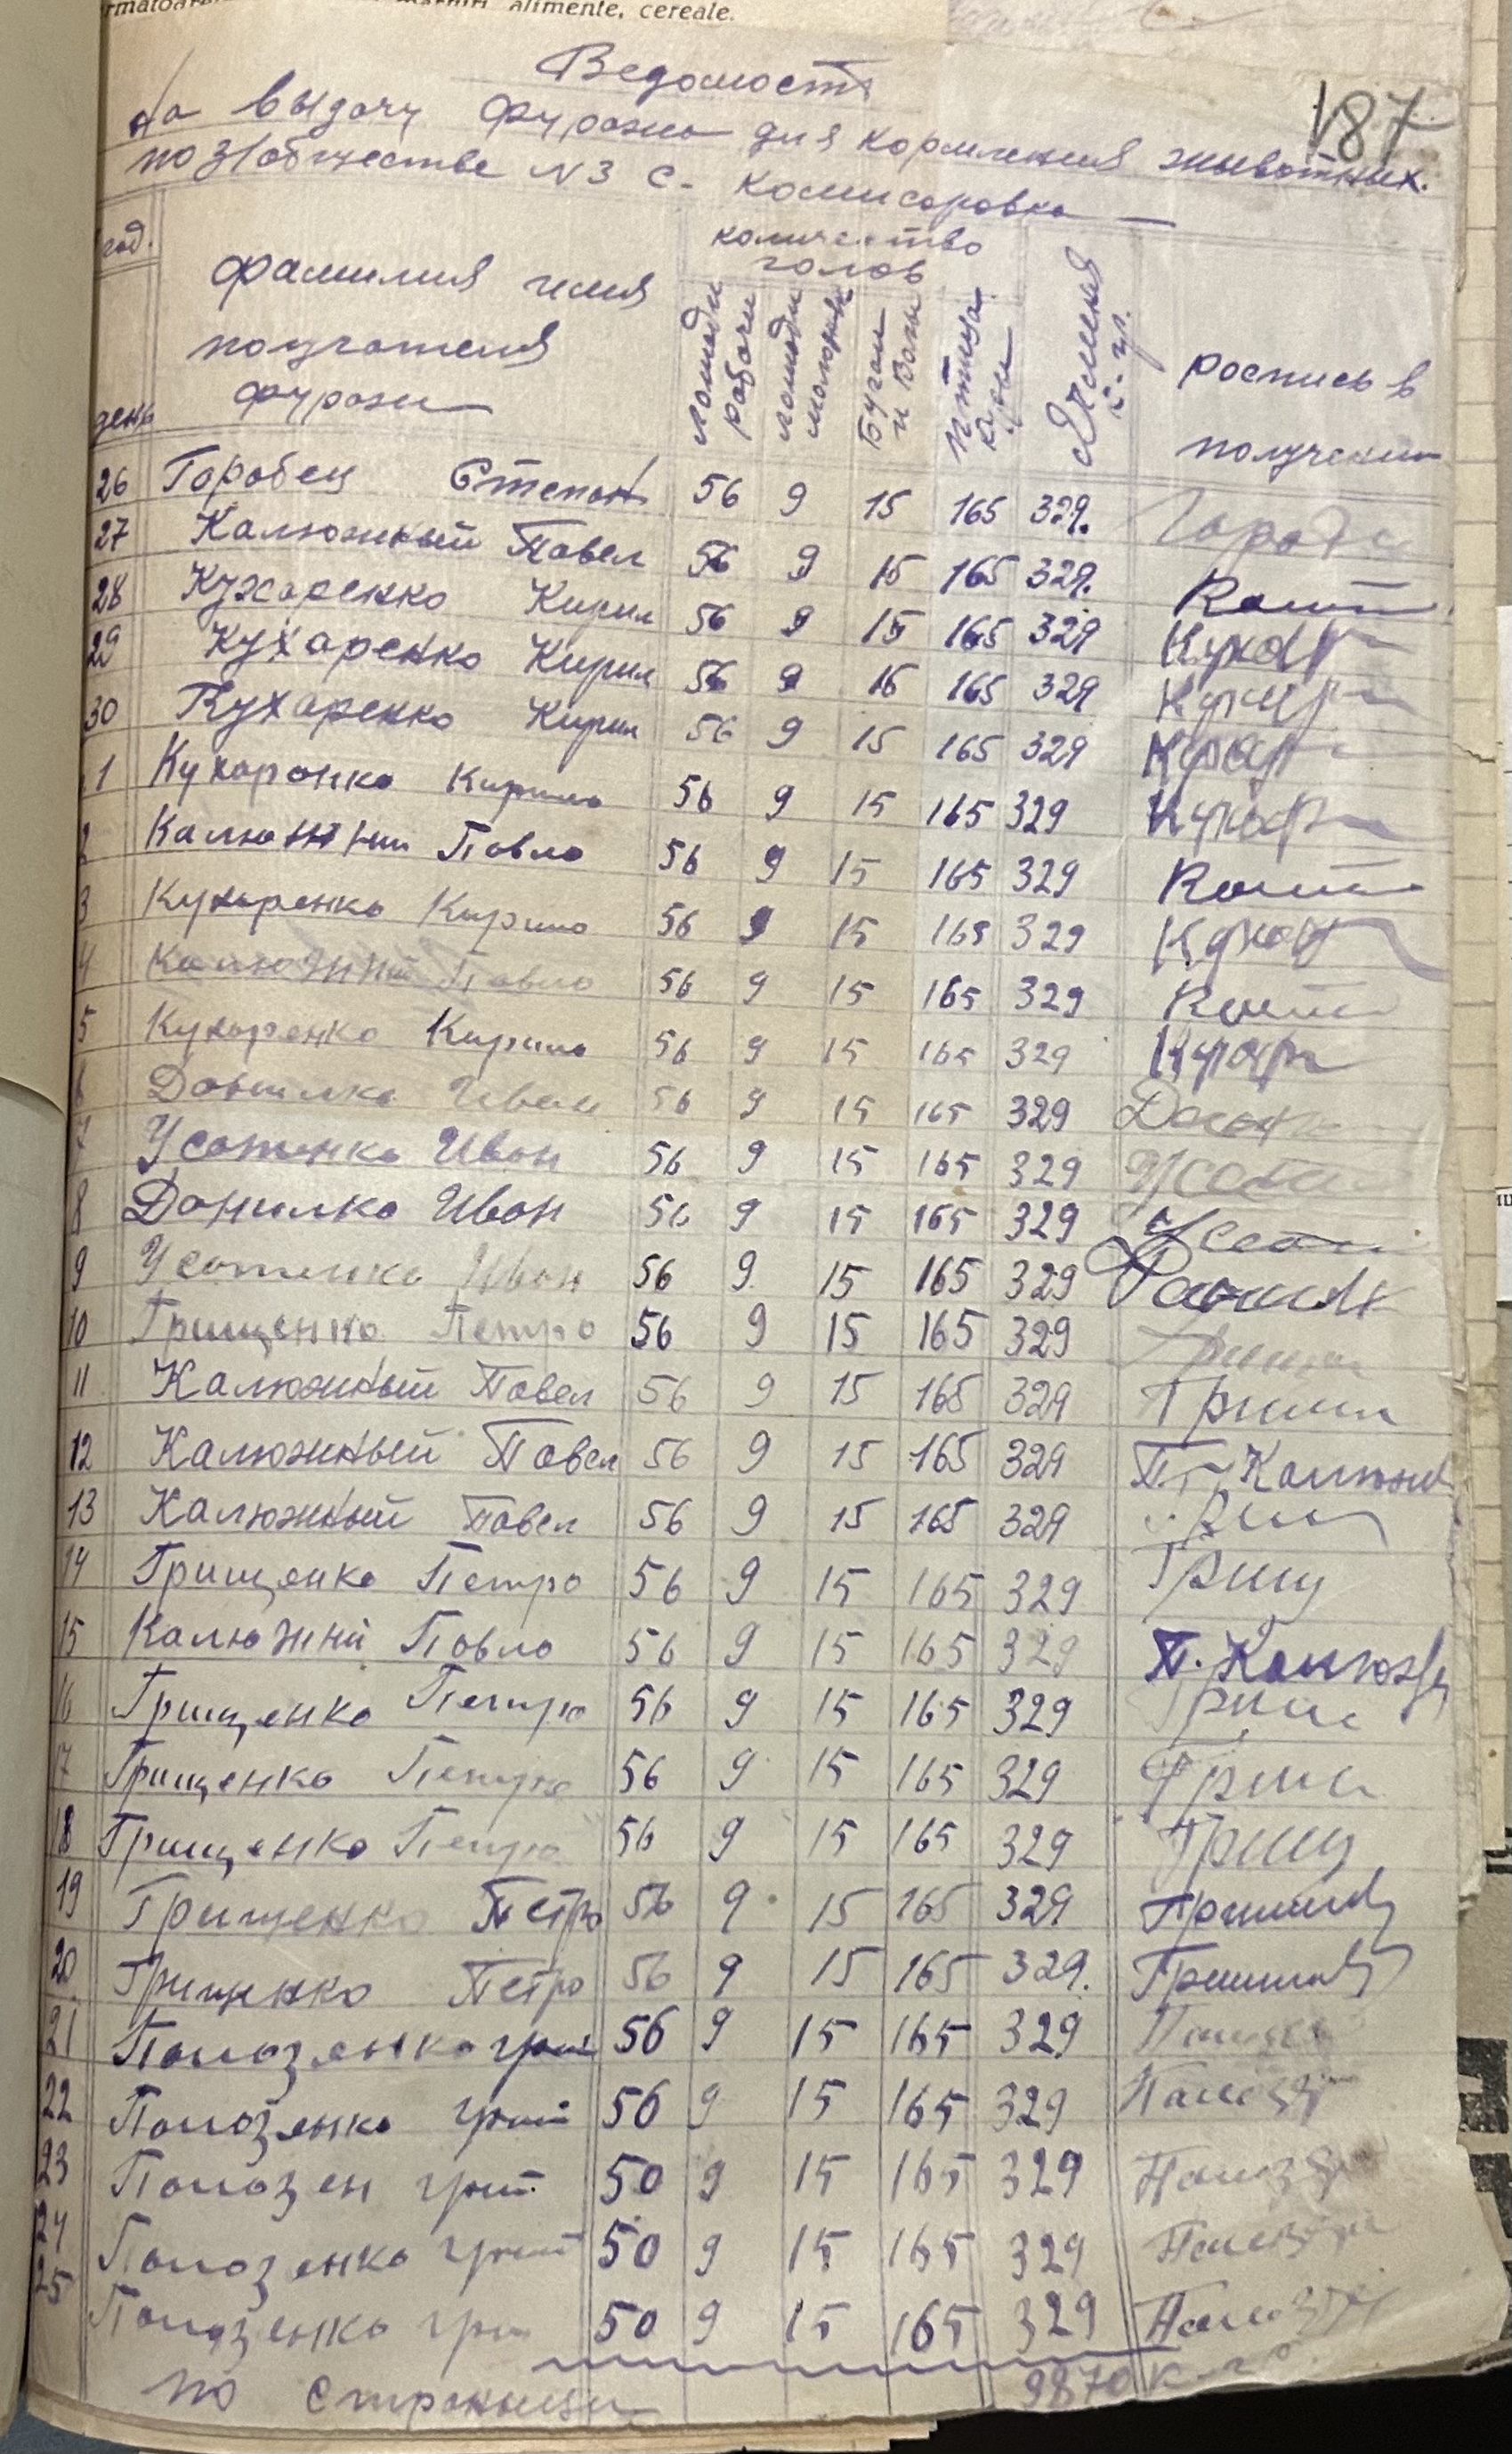 alimente, cereale.
187
Ведомость
на выдачу фуража для кормления животных.
по з/обществе N3 с. Комисаровка
год.
день
фамилия имя
получателя
фуража
количество
голов
Лошади рабочи
Лошади молодняк
Бугаи и Волы
птица куры
Ячменя к-гр.
роспись в
получении
26 Горобец Степан 56 9 15 165 329.
27 Калюжный Павел 56 9 15 165 329.
28 Кухаренко Кирил 56 9 15 165 329 Кухар
29 Кухаренко Кирил 56 9 15 165 329 Кухар
30 Кухаренко Кирил 56 9 15 165 329 Кухар
1 Кухаренко Кирило 56 9 15 165 329 Кухар
2 Калюжни Павло 56 9 15 165 329
3 Кухаренко Кирило 56 9 15 165 329 Кухар
4 Калюжний Павло 56 9 15 165 329
5 Кухаренко Кирило 56 9 15 165 329 Кухар
6 Данилко Иван 56 9 15 165 329
7 Усатенко Иван 56 9 15 165 329
8 Данилко Иван 56 9 15 165 329
9 Усатенко Иван 56 9 15 165 329
10 Грищенко Петро 56 9 15 165 329
11 Калюжный Павел 56 9 15 165 329
12 Калюжный Павел 56 9 15 165 329
13 Калюжный Павел 56 9 15 165 329
14 Грищенко Петро 56 9 15 165 329 Грищ
15 Калюжний Павло 56 9 15 165 329 П. Калюж
16 Грищенко Петро 56 9 15 165 329
17 Грищенко Петро 56 9 15 165 329
18 Грищенко Петро 56 9 15 165 329 Грищ
19 Грищенко Петро 56 9 15 165 329
20 Грищенко Петро 56 9 15 165 329.
21 Полозенко григ 56 9 15 165 329
22 Полозенко григ 56 9 15 165 329
23 Полозен григ 50 9 15 165 329
24 Полозенко григ 50 9 15 165 329
25 Полозенко гри 50 9 15 165 329
по страници 9870 к